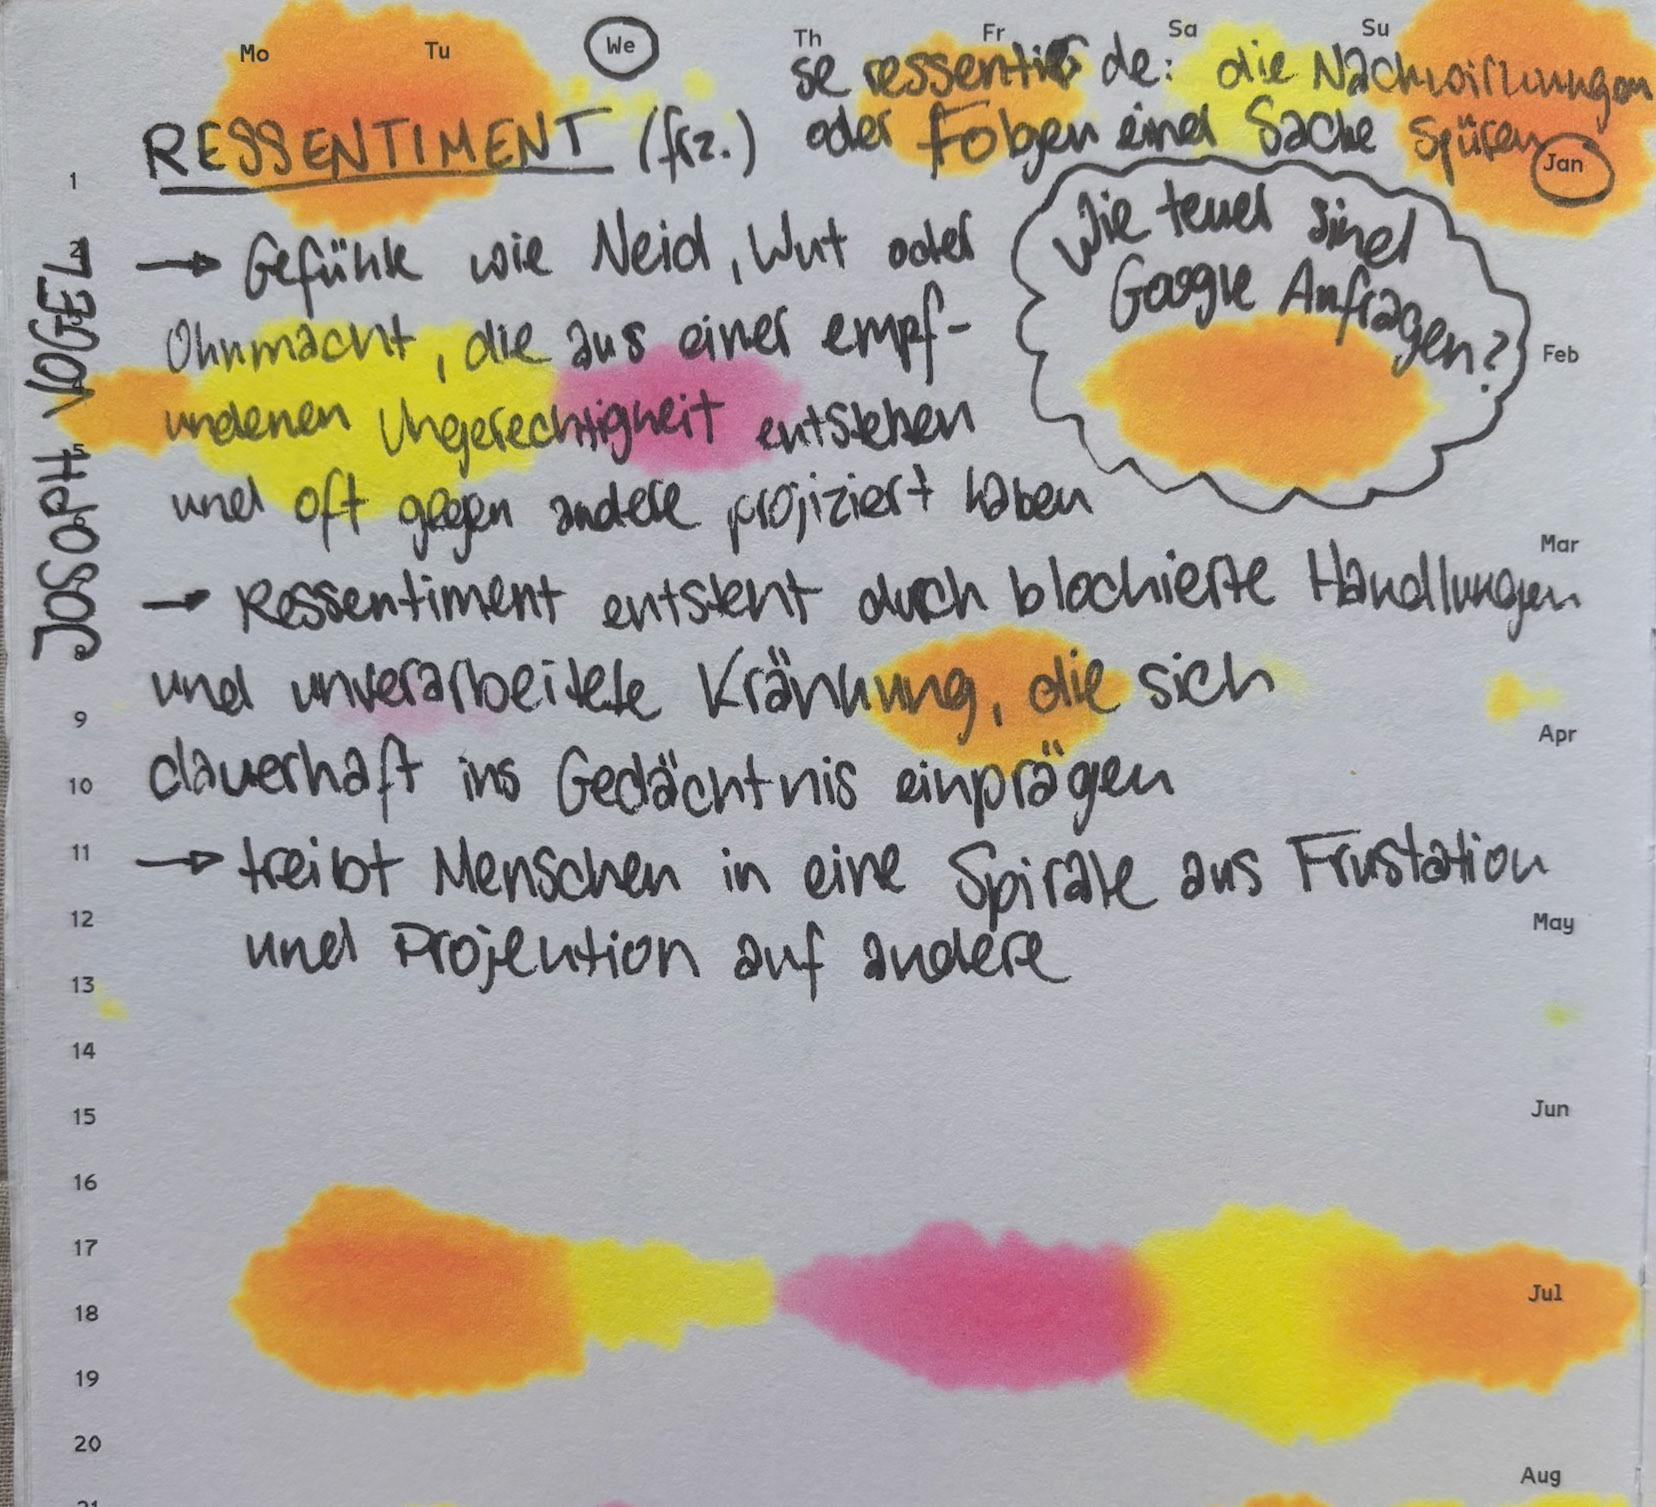 Mo Tu We Th Fr Sa Su
se ressentir de: die Nachwirkungen
RESSENTIMENT (frz.) oder Folgen einer Sache spüren
Jan
1
→ Gefühle wie Neid, Wut oder
Ohnmacht, die aus einer empf-
undenen Ungerechtigkeit entstehen
und oft gegen andere projiziert haben
JOSOPH VOGEL
2
5
Wie teuer sind
Google Anfragen?
Feb
Mar
→ Ressentiment entsteht durch blockierte Handlungen
und unverarbeitete Kränkung, die sich
9
Apr
dauerhaft ins Gedächtnis einprägen
10
11
→ treibt Menschen in eine Spirale aus Frustation
und Projektion auf andere
12
May
13
14
15
Jun
16
17
18
Jul
19
20
Aug
21